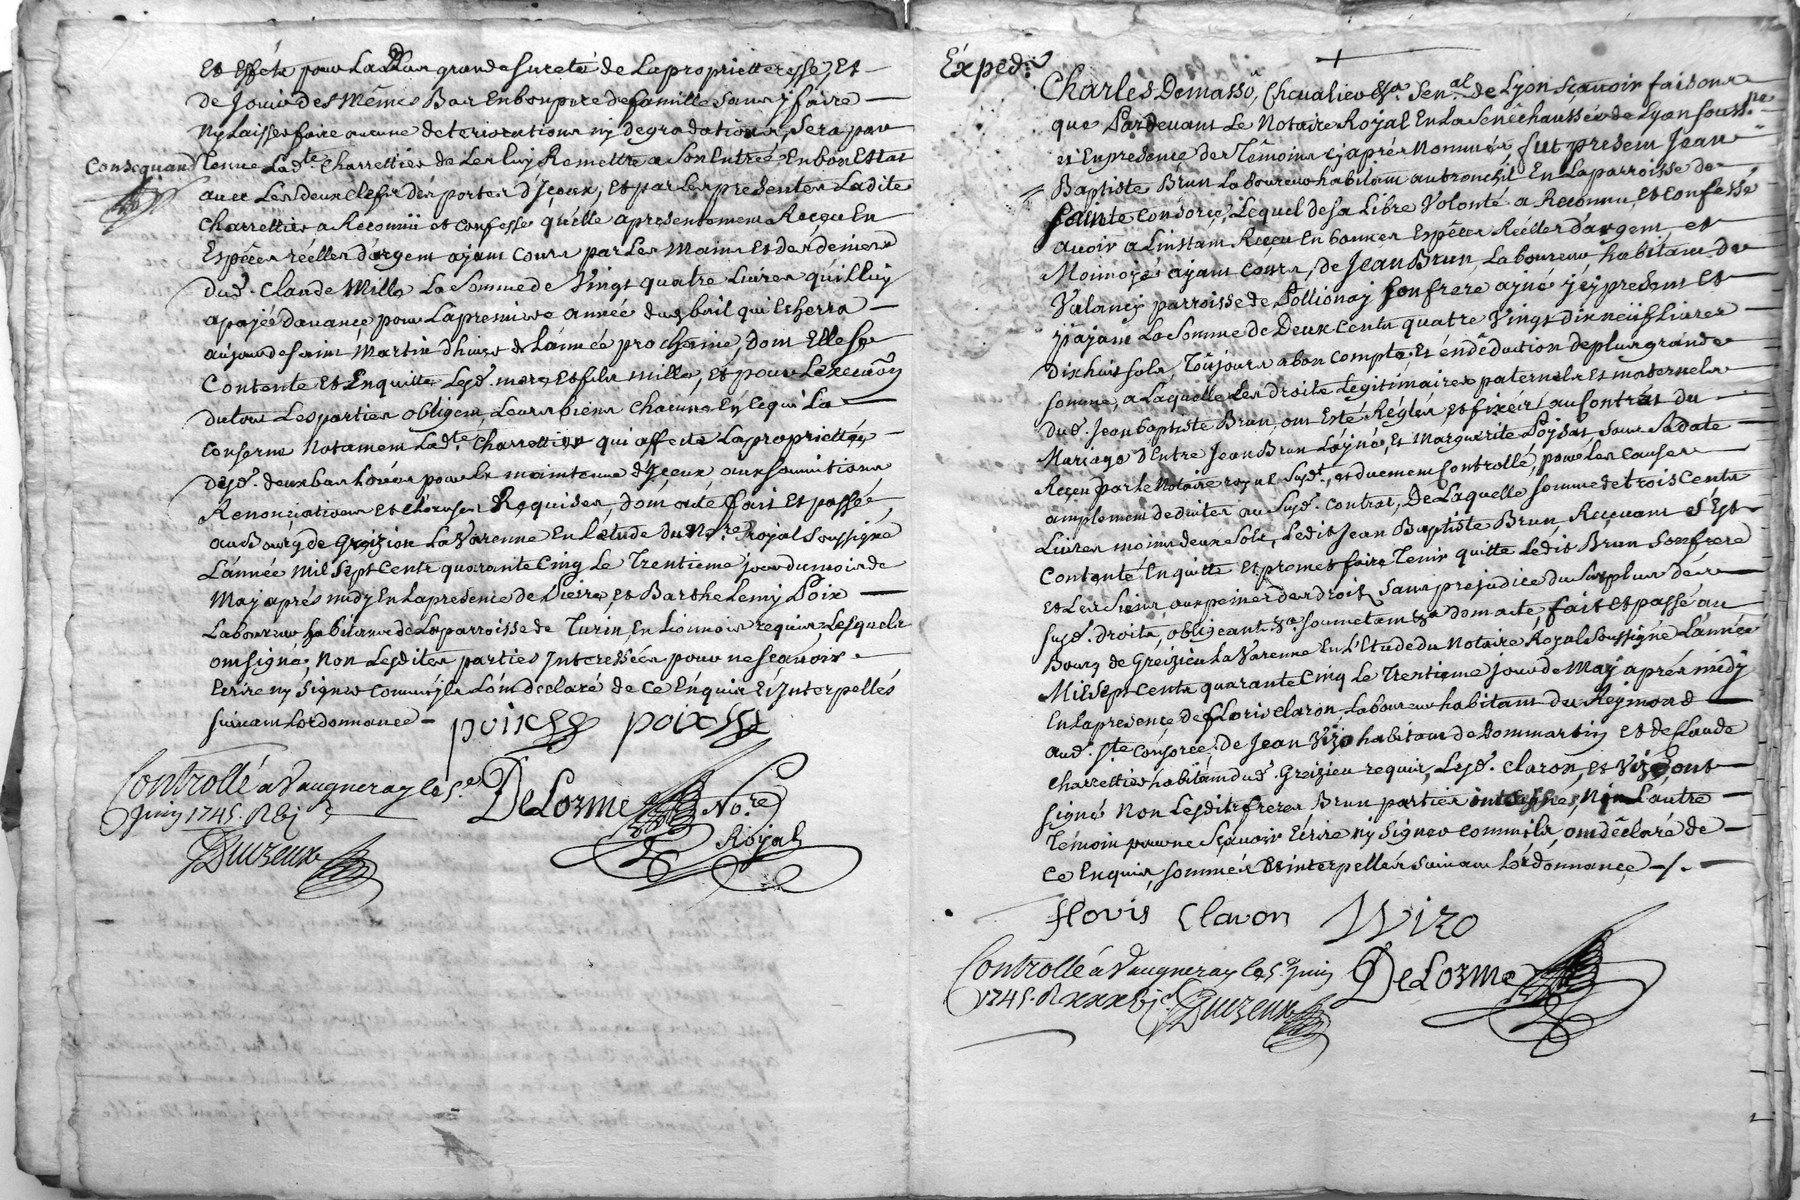 Et Effets pour La plus grande sureté de La proprietteresse, Et
de Jouir des Mêmes Bas En bon pere de famille sans y faire
Ny Laisser faire aucune deteriorations ny degradations, Sera par
Consequant
tenue Lad.te Charrettier de Les luy Remettre a Son Entrée En bon Estat
avec Les deux clefs des portes d'Jceux, et par Les presentes Ladite
Charrettier a Reconnu et confessé qu'elle a presentement Reçeu En
Espéces réelles d'argent ayant cours par Les Mains et des deniers
dud. Claude Mills La Somme de Vingt quatre Livres qu'il luy
a payé d'avance pour La premiere année dud. bail qui Escherra
au jour de saint Martin d'hiver de L'année prochaine, dont Elle se
Contente Et En quitte Lesd. mere et fils mills, et pour L'execu͠on
du tout Les parties obligent Leurs biens chacune En ce qui La
Conserne Notament Lad.te Charrettier qui affecte La proprietté
desd. deux bas Loués pour la maintenue d'Jceux aux soumitions
Renonciations et clauses Requises, dont acte fait Et passé,
au Bourg de Greizieu La Varenne En L'etude du No.re Royal Soussigné
L'année mil Sept Cents quarante Cinq Le Trentieme jour du mois de
May aprés midy En La presence de Pierre, et Barthelemy Poix
Laboureurs habitants de La parroisse de Turin, En Lionnois requis, Lesquels
ont signé, Non Lesdites parties Interessées pour ne sçavoir
Ecrire ny Signer comm'ils L'ont declaré de ce Enquis Et Interpellés
suivant L'ordonnance
poix poix
Controllé a Vaugneray le 5.e
Juin 1745. R
DeLorme No.re
Royal
Duizeux
Exped.é
Charles Demasso, Chevalier &a Sen.al de Lyon sçavoir faisons
que Pardevant Le Notaire Royal En La Sénéchaussée de Lyon souss.né
et En presence des Témoins cy aprés Nommés fut present Jean
Baptiste Brun Laboureur habitant au tronchil En La parroisse de
Sainte Consorce, Lequel de sa Libre Volonté a Reconnu, et Confessé
avoir a L'instant Reçeu En bonnes Espéces Réelles d'argent, et
Monnoye ayant cours, de Jean Brun, Laboureur habitant de
Valancy parroisse de Pollionay Son frere ayné jcy present Et
payant La Somme de Deux Cents quatre Vingt Dix neuf Livres
dix huit sols, Toûjours a bon compte, Et én déduction de plus grande
somme, a Laquelle Les droits Legitimaires paternels Et maternels
dud. Jean Baptiste Brun, ont Esté Réglés, et fixéés au Contrat du
Mariage d'Entre Jean Brun L'ayné, Et Marguerite Poysat, sous Sa date
Reçeu par le Notaire royal Susd.t, et duement Controllé, pour les causes
amplement deduites au Susd. contrat, De Laquelle somme de trois Cents
Livres moins deux Sols, Ledit Jean Baptiste Brun, Reçevant S'Est
Contenté En quitte Et promet faire Tenir quitte Ledit Brun Son frere
Et Les Siens aux peines de droit, Sans prejudice du Surplus dé
susd. droits, obligeant &a soumettant &a Dont acte, fait Et passé au
Bourg de Greizieu La Varenne En L'Etude du Notaire Royal Soussigné L'année
Mil Sept Cents quarante Cinq Le Trentieme Jour de May aprés midy
En La presence de Floris claron Laboureur habitant du Reymond
aud. S.te Consorce, de Jean Vizo habitant de Dommartin et de Claude
Charrettier habitant dud. Greizieu requis, Lesd. Claron, et Vizo ont
signé Non Lesdits freres Brun parties Ny L'autre
Témoin pour ne Sçavoir Ecrire ny Signer comm'ils, ont déclaré de
ce Enquis, sommés Et interpellés suivant L'ordonnance
floris Claron Viro
Controllé á Vaugneray le 5.e Juin
DeLorme
1745. R
Duizeux